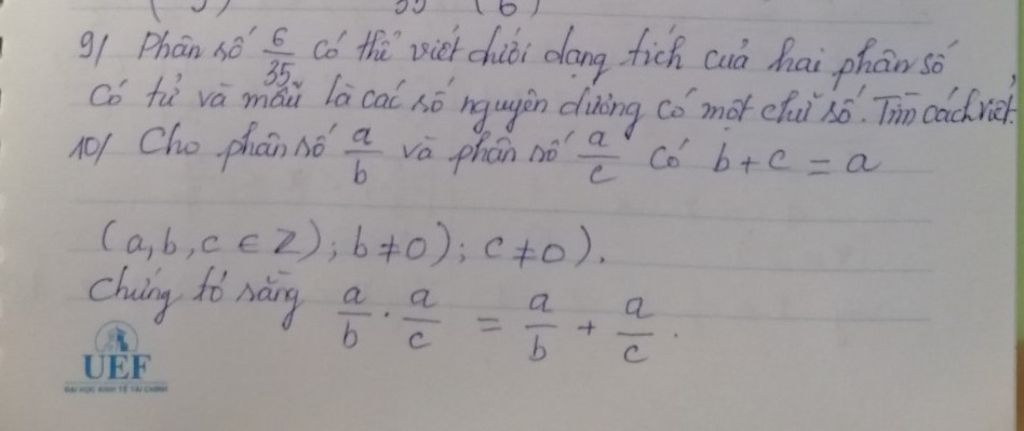 9/ Phân số 6/35 có thể viết dưới dạng tích của hai phân số
Có tử và mẫu là các số nguyên dương có một chữ số. Tìm cách viết.
10/ Cho phân số a/b và phân số a/c có b + c = a
(a, b, c ∈ Z); b ≠ 0); c ≠ 0).
Chứng tỏ rằng a/b . a/c = a/b + a/c.
UEF
ĐẠI HỌC KINH TẾ TÀI CHÍNH